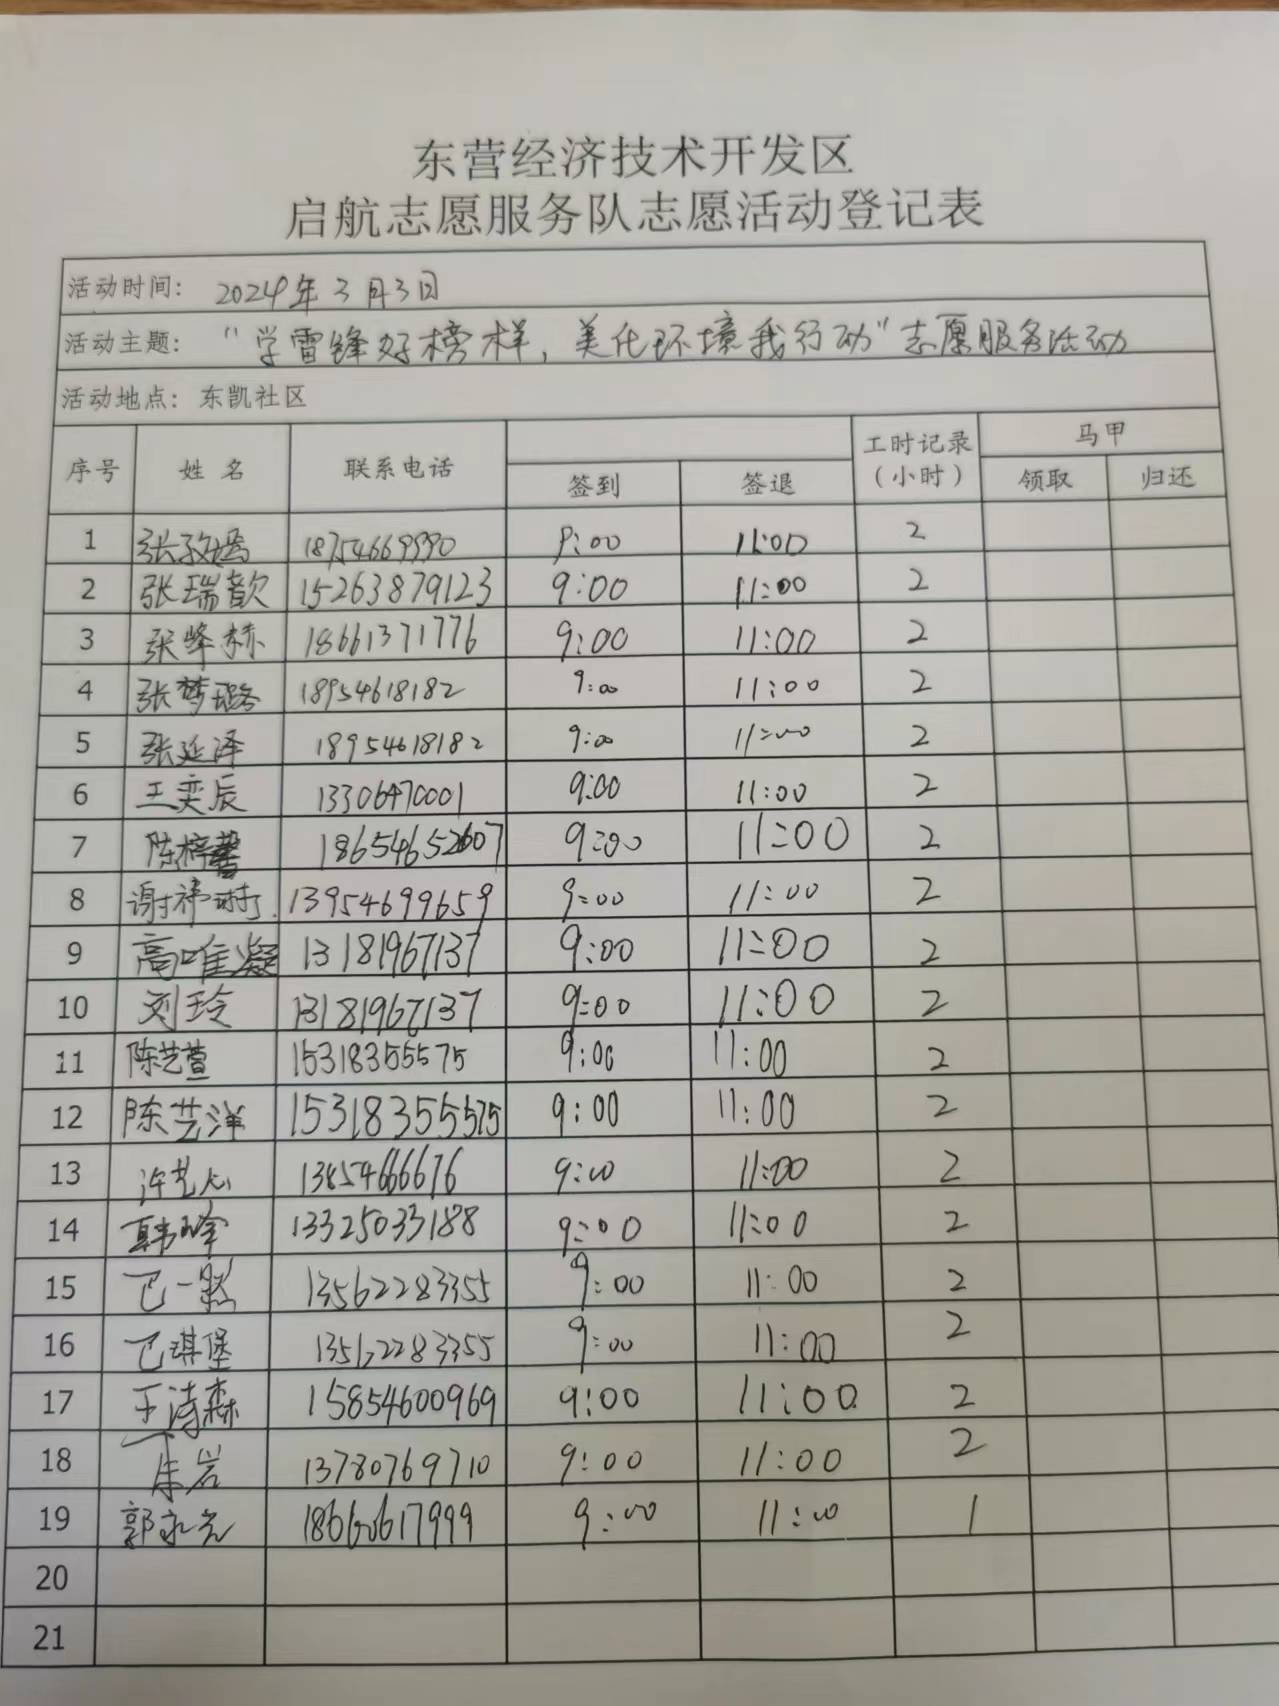 东营经济技术开发区
启航志愿服务队志愿活动登记表
活动时间: 2024年3月3日
活动主题: "学雷锋好榜样,美化环境我行动"志愿服务活动
活动地点: 东凯社区
序号 姓名 联系电话 签到 签退 工时记录(小时) 马甲 领取 归还
1 18754669990 9:00 11:00 2
2 张瑞歆 15263879123 9:00 11:00 2
3 张峰赫 18661371776 9:00 11:00 2
4 张梦璐 18954618182 9:00 11:00 2
5 张延泽 18954618182 9:00 11:00 2
6 王奕辰 13306470001 9:00 11:00 2
7 陈梓馨 18654652607 9:00 11:00 2
8 13954699659 9:00 11:00 2
9 高唯凝 13181967137 9:00 11:00 2
10 刘玲 13181967137 9:00 11:00 2
11 陈艺萱 15318355575 9:00 11:00 2
12 陈艺洋 15318355575 9:00 11:00 2
13 9:00 11:00 2
14 韩峰 13325033188 9:00 11:00 2
15 巴一 13562283355 9:00 11:00 2
16 巴琪堡 13562283355 9:00 11:00 2
17 王诗森 15854600969 9:00 11:00 2
18 朱岩 13780769710 9:00 11:00 2
19 郭永光 18660617999 9:00 11:00 1
20
21